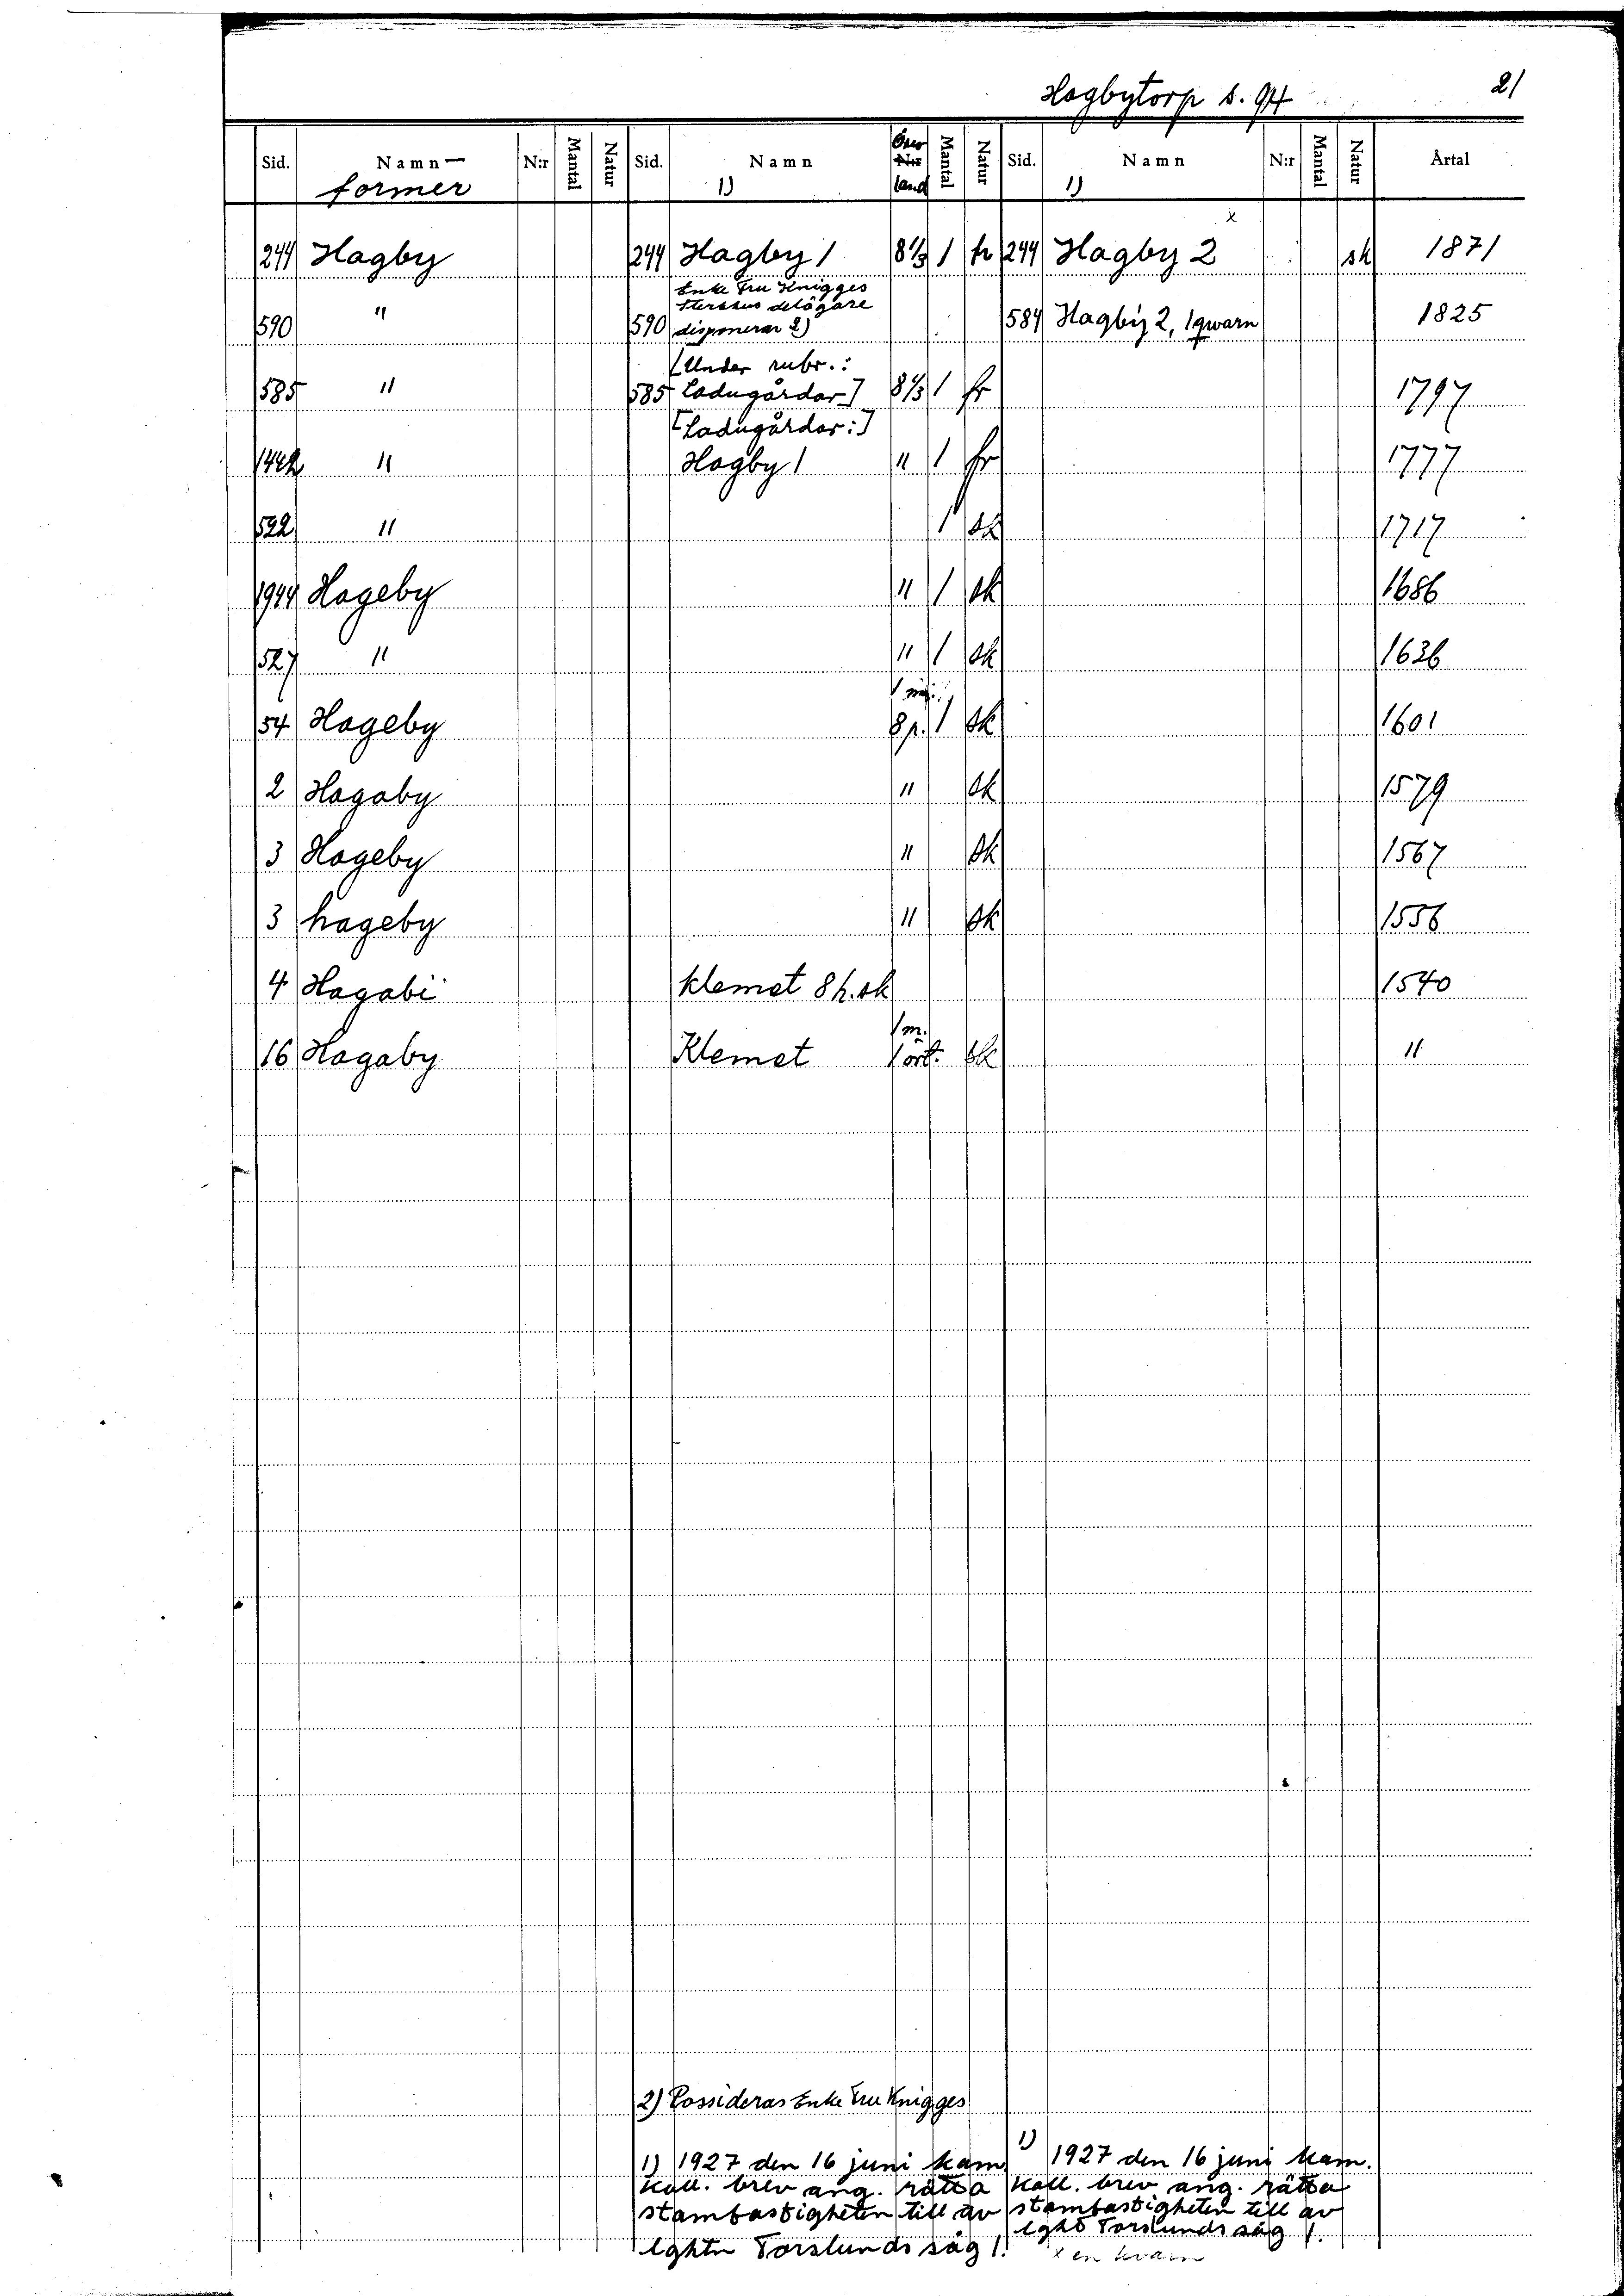 Hagbytorp s. 94 21
Sid. Namn- N:r Mantal Natur Sid. Namn Öres N:r Mantal Natur Sid. Namn N:r Mantal Natur Årtal
former 1) land 1)
x
244 Hagby 244 Hagby 1 8 1/3 1 fr 244 Hagby 2 sk 1871
Enke Fru Knigges
Sterbhus delägare
590 " 590 disponerar 2) 584 Hagby 2, 1 qwarn 1825
[Under rubr.:
585 " 585 Ladugårdar] 8 1/3 1 fr 1797
[Ladugårdar:]
" Hagby 1 " 1 fr 1777
522 " 1 sk 1717
1944 Hageby " 1 sk 1686
527 " " 1 sk 1636
54 Hageby 8 p. 1 sk 1601
2 Hagaby " sk 1579
3 Hageby " sk 1567
3 hageby " sk 1556
4 Hagabi klemet 8 p. sk 1540
1 m.
16 Hagaby Klemet 1 ört. sk "
2) Possideras Enke Fru Knigges
1) 1927 den 16 juni kam. 1) 1927 den 16 juni kam.
koll. brev ang. rätta koll. brev ang. rätta
stamfastigheten till av stamfastigheten till av
lghtn Torslunds såg 1. lght Torslunds såg 1.
x en kvarn